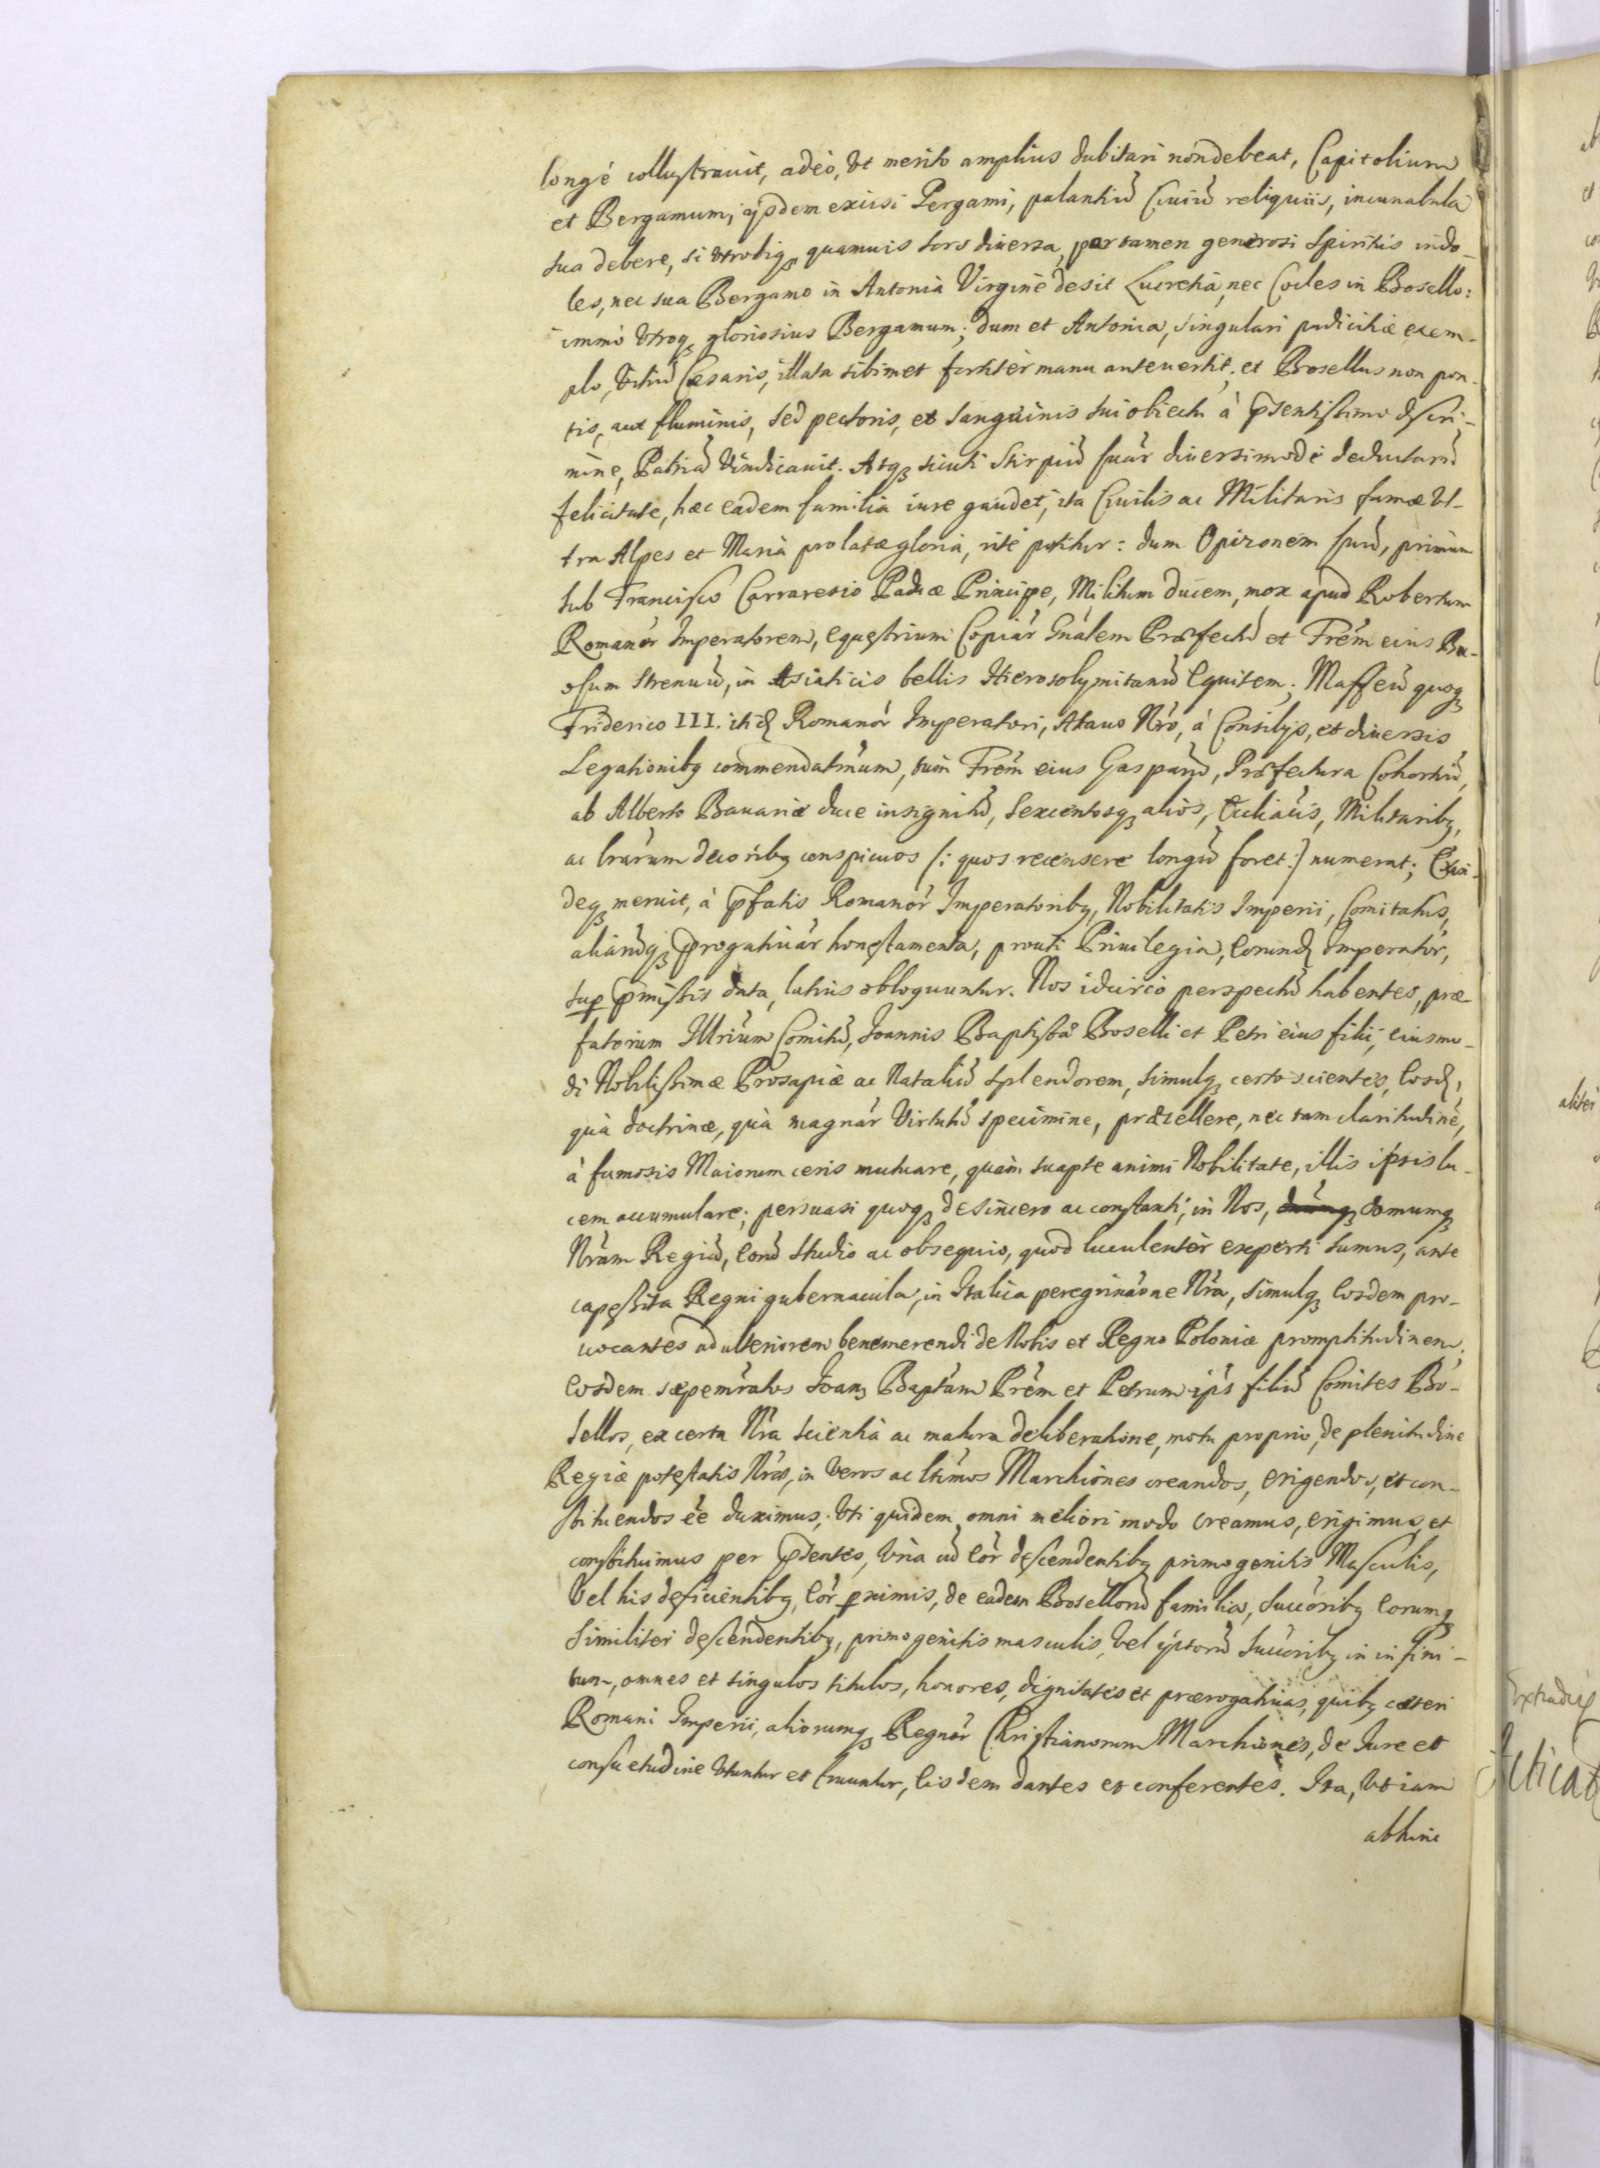 longè collustrauit, adeò, vt meritò amplius dubitari nondebeat, Capitolium
et Bergamum, ijsdem excisi Pergami, palantiũ Ciuiũ reliquiis, incunabula
sua debere, si vtrobiq3, quamuis sors diuersa, par tamen generosi spiritûs indo-
les, nec sua Bergamo in Antonià Virginè desit Lucretia, nec Cocles in Bosello:
immò vtroq3 gloriosius Bergamum; dum et Antonia, singulari pudicitiæ exem-
plo, Cæsaris, illata sibimet fortitèr manu anteuertit, et Bosellus non pon-
tis, aut fluminis, sed pectoris, et sanguinis sui obiectu à p̃sentissimo discri-
mine, Patriã vindicauit. Atq3 sicuti Stirpiũ suar̃ diuersimodè deductarũ
felicitate, hæc eadem familia iure gaudet, ita Ciuilis ac Militaris famæ vl-
tra Alpes et Maria prolatæ gloria, ritè potitur: dum Opizonem suũ, primùm
sub Francisco Carraresio Paduæ Principe, Militum ducem, mox apud Robertum
Romanor̃ Imperatorem, equestrium Copiar̃ Gnãlem Præfectũ et Frẽm eius Ba-
osum strenuũ, in Asiaticis bellis Hierosolymitanũ Equitem; Maffeũ quoq3
Friderico III. itid̃ Romanor̃ Imperatori, Atauo Nr̃o, à Consilijs, et diuersis
Legationibq commendatm̃um, tùm Frẽm eius Gasparẽ, Præfectura Cohortiũ,
ab Alberto Bauariæ duce insignitũ, sexcentosq3 alios, Militaribq,
ac lrãrum decoribq conspicuos (: quos recensere longũ foret :) numerat;
deq3 meruit, à p̃fatis Romanor̃ Imperatoribq, Nobilitatis Imperii, Comitatus,
aliarũq3 p̃rogatiuar̃ honestamenta, prouti Priuilegia, Eorund̃ Imperator̃,
sup p̃missis data, latiùs obloquuntur. Nos idcircò perspectũ habentes, præ-
fatorum Illrĩum Comitũ, Joannis Baptistæ Boselli et Petri eius filii, eiusmo-
di Nobilissimæ Prosapiæ ac Nataliũ splendorem, simulq3 certo scientes, Eosd̃,
quà doctrinæ, quà magnar̃ Virtutũ specimine, præcellere, nec tam claritudinẽ,
à fumosis Maiorum ceris mutuare, quàm suapte animi Nobilitate, illis ipsis lu-
cem accumulare; persuasi quoq3 de sincero ac constanti, in Nos, domumq3
Nrãm Regiã, Eorũ studio ac obsequio, quod luculentèr experti sumus, ante
capessita Regni gubernacula, in Italica peregrinãone Nrã, simulq3 Eosdem pro-
uocantes ad ulteriorem benemerendi de Nobis et Regno Poloniæ promptitudinem,
Eosdem sæpemr̃atos Joan3 Baptãm Prẽm et Petrum ip̃s filiũ Comites Bo-
sellos, ex certa Nrã scientia ac matura deliberatione, motu proprio, de plenitudine
Regiæ potestatis Nrã, in veros ac ltĩmos Marchiones creandos, erigendos, et con-
stituendos eẽ duximus, vti quidem omni meliori modo creamus, erigimus, et
constituimus per p̃sentes, vnà cũ Eor̃ descendentibq primogenitis Masculis,
Vel his deficientibq, Eor̃ pximis, de eadem Bosellorũ familia, successoribq Eorumq3
similiter descendentibq, primogenitis masculis, vel ipsorũ Succoribq in infini-
tum, omnes et singulos titulos, honores, dignitates et prærogatiuas, quibq cæteri
Romani Imperii, aliorumq3 Regnor̃ Christianorum Marchiones, de Jure et
consuetudine vtuntur et fruuntur, Eisdem dantes et conferentes. Ita, vt iam
abhinc
aliter